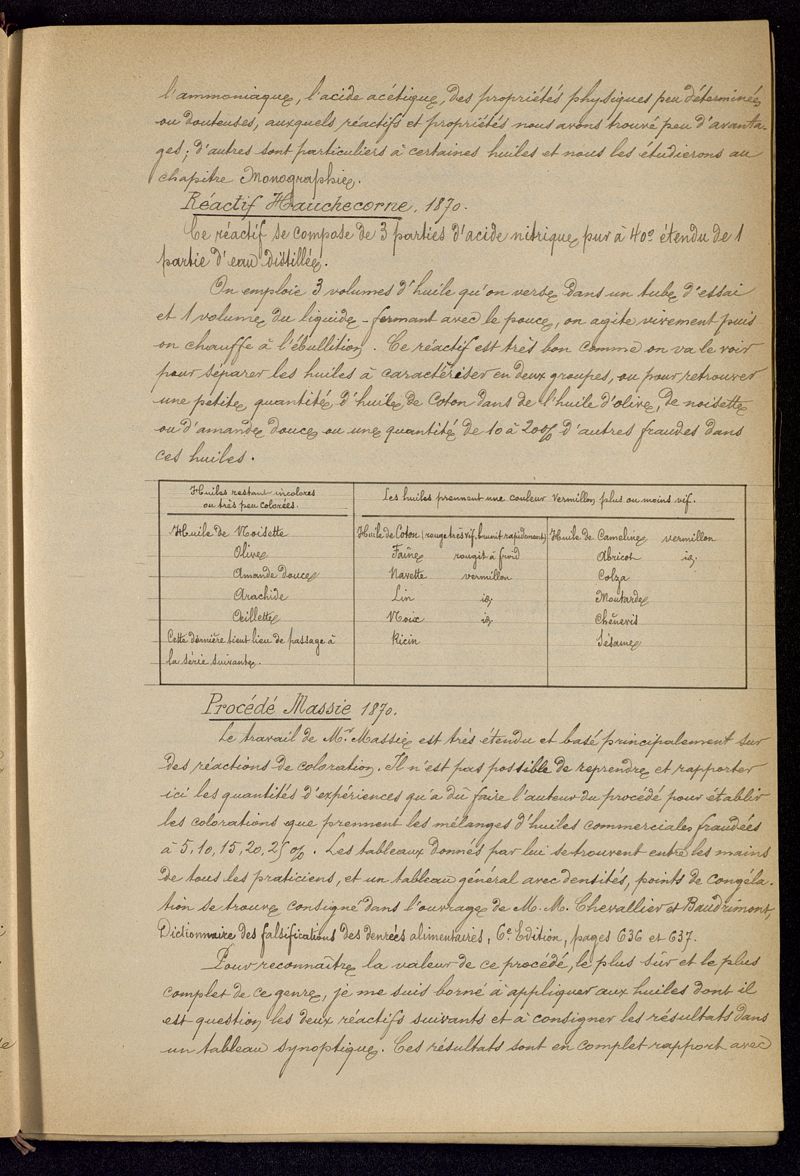 l'ammoniaque, l'acide acétique, des propriétés physiques peu déterminées
ou douteuses, auxquels réactifs et propriétés nous avons trouvé peu d'avanta-
ges; d'autres sont particuliers à certaines huiles et nous les étudierons au
chapitre Monographie.
Réactif Hauchecorne. 1870.
Ce réactif se compose de 3 parties d'acide nitrique pur à 40° étendu de 1
partie d'eau distillée.
On emploie 3 volumes d'huile qu'on verse dans un tube d'essai
et 1 volume du liquide - fermant avec le pouce, on agite vivement puis
on chauffe à l'ébullition. Ce réactif est très bon comme on va le voir
pour séparer les huiles à caractériser en deux groupes, ou pour retrouver
une petite quantité d'huile de Coton dans de l'huile d'olive, de noisette
ou d'amande douce ou une quantité de 10 à 20% d'autres fraudes dans
ces huiles.
Huiles restant incolores
ou très peu colorées.
Les huiles prennent une couleur vermillon plus ou moins vif.
Huile de Noisette
Huile de Coton (rouge très vif, brunit rapidement)
Huile de Cameline vermillon
Olive
Faîne rougit à froid
Abricot id.
Amande Douce
Navette vermillon
Colza
Arachide
Lin id.
Moutarde
Œillette
Noix id.
Chènevis
Cette dernière tient lieu de passage à
Ricin
Sésame
la série suivante.
Procédé Massie 1870.
Le travail de Mr Massie est très étendu et basé principalement sur
des réactions de coloration. Il n'est pas possible de reprendre et rapporter
ici les quantités d'expériences qu'a dû faire l'auteur du procédé pour établir
les colorations que prennent les mélanges d'huiles commerciales fraudées
à 5, 10, 15, 20, 25 %. Les tableaux donnés par lui se trouvent entre les mains
de tous les praticiens, et un tableau général avec densités, points de congéla-
tion se trouve consigné dans l'ouvrage de M.M. Chevallier et Baudrimont,
Dictionnaire des falsifications des denrées alimentaires, 6e Edition, pages 636 et 637.
Pour reconnaître la valeur de ce procédé, le plus sûr et le plus
complet de ce genre, je me suis borné à appliquer aux huiles dont il
est question les deux réactifs suivants et à consigner les résultats dans
un tableau synoptique. Ces résultats sont en complet rapport avec